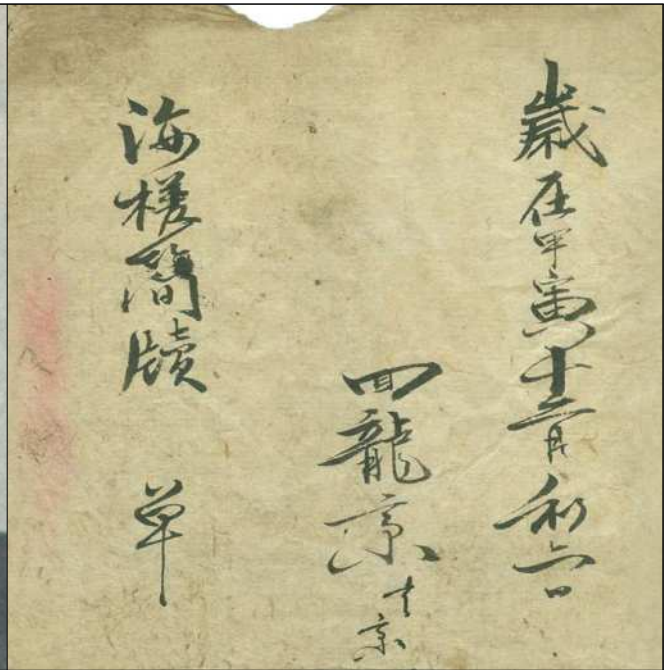 歲在甲寅十二月初六日
回龍
海槎簡牘 草